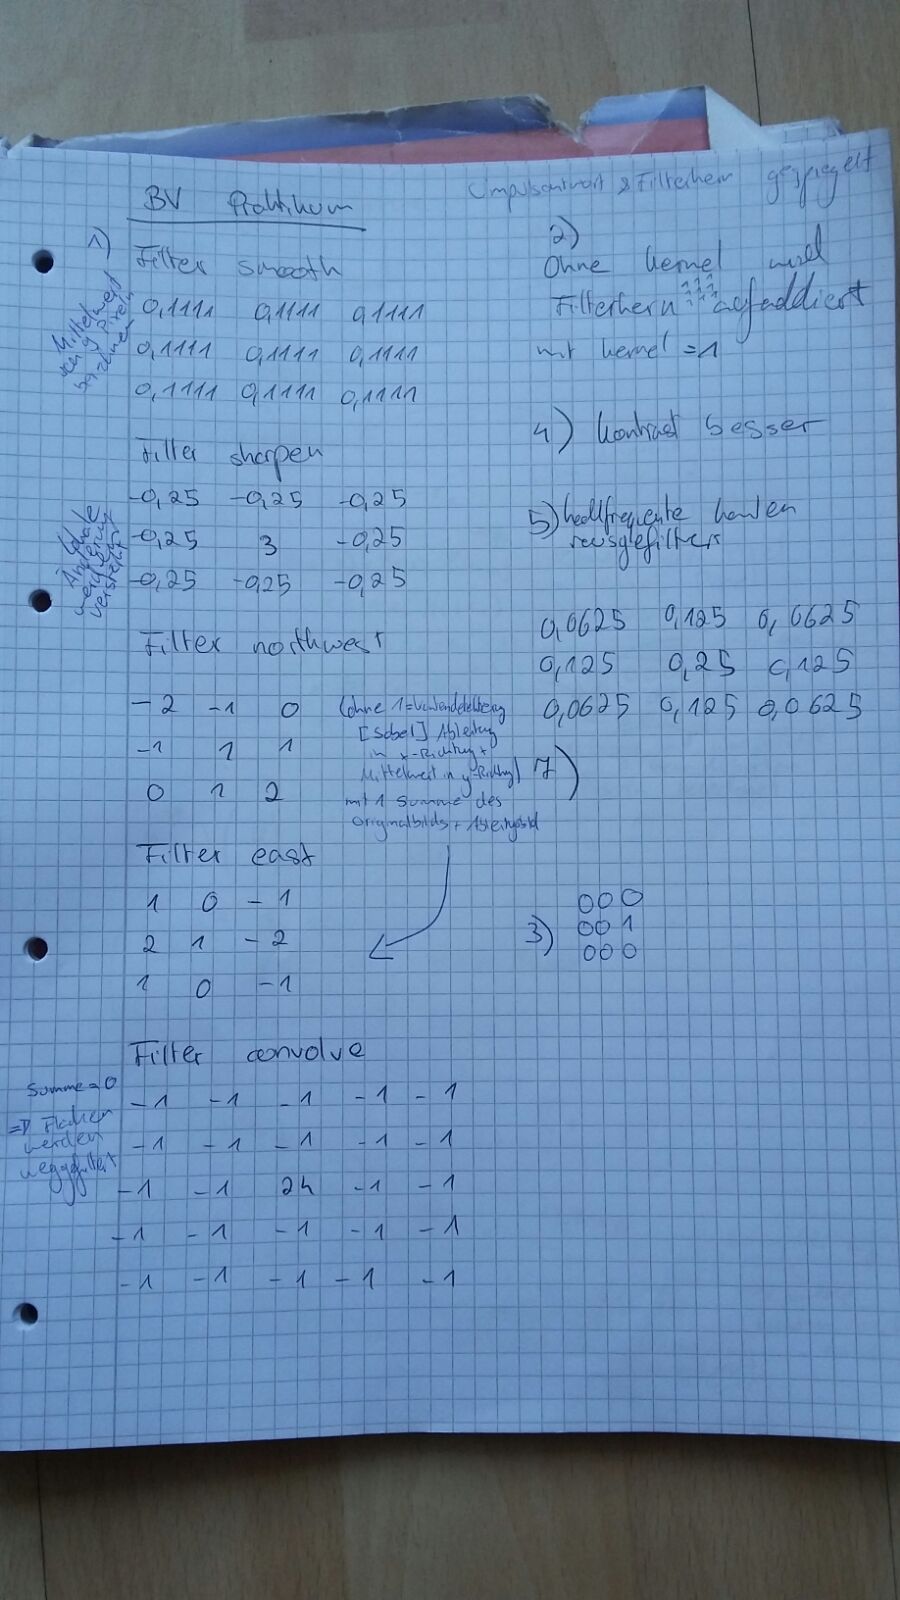 BV Praktikum
1)
Mittelwert
von 9 Pixeln
Filter smooth
0,1111 0,1111 0,1111
0,1111 0,1111 0,1111
0,1111 0,1111 0,1111
Filter sharpen
-0,25 -0,25 -0,25
-0,25 3 -0,25
-0,25 -0,25 -0,25
lokale
Änderung
werden
verstärkt
Filter northwest
-2 -1 0
-1 1 1
0 1 2
(ohne 1 =
[Sobel] Ableitung
in x-Richtung +
Mittelwert in y-Richtung)
mit 1 Summe des
Originalbilds + Ableitungsbild
Filter east
1 0 -1
2 1 -2
1 0 -1
Filter convolve
Summe = 0
=> Flächen
werden
weggefiltert
-1 -1 -1 -1 -1
-1 -1 -1 -1 -1
-1 -1 24 -1 -1
-1 -1 -1 -1 -1
-1 -1 -1 -1 -1
Impulsantwort & Filterkern gespiegelt
2)
Ohne kernel wird
Filterkern 111 111 111 aufaddiert
mit kernel = 1
4) Kontrast besser
5) hochfrequente Kanten
rausgefiltert
0,0625 0,125 0,0625
0,125 0,25 0,125
0,0625 0,125 0,0625
7)
3)
000
001
000